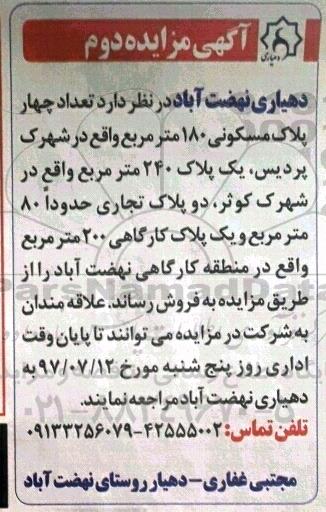 آگهی مزایده دوم
دهیاری
دهیاری نهضت آباد در نظر دارد تعداد چهار
پلاک مسکونی ۱۸۰ متر مربع واقع در شهرک
پردیس، یک پلاک ۲۴۰ متر مربع واقع در
شهرک کوثر، دو پلاک تجاری حدوداً ۸۰
متر مربع و یک پلاک کارگاهی ۲۰۰ متر مربع
واقع در منطقه کارگاهی نهضت آباد را از
طریق مزایده به فروش رساند. علاقه مندان
به شرکت در مزایده می توانند تا پایان وقت
اداری روز پنج شنبه مورخ ۹۷/۰۷/۱۲ به
دهیاری نهضت آباد مراجعه نمایند.
تلفن تماس: ۴۲۵۵۵۰۰۲-۰۹۱۳۳۲۵۶۰۷۹
مجتبی غفاری - دهیار روستای نهضت آباد
ParsNamadData